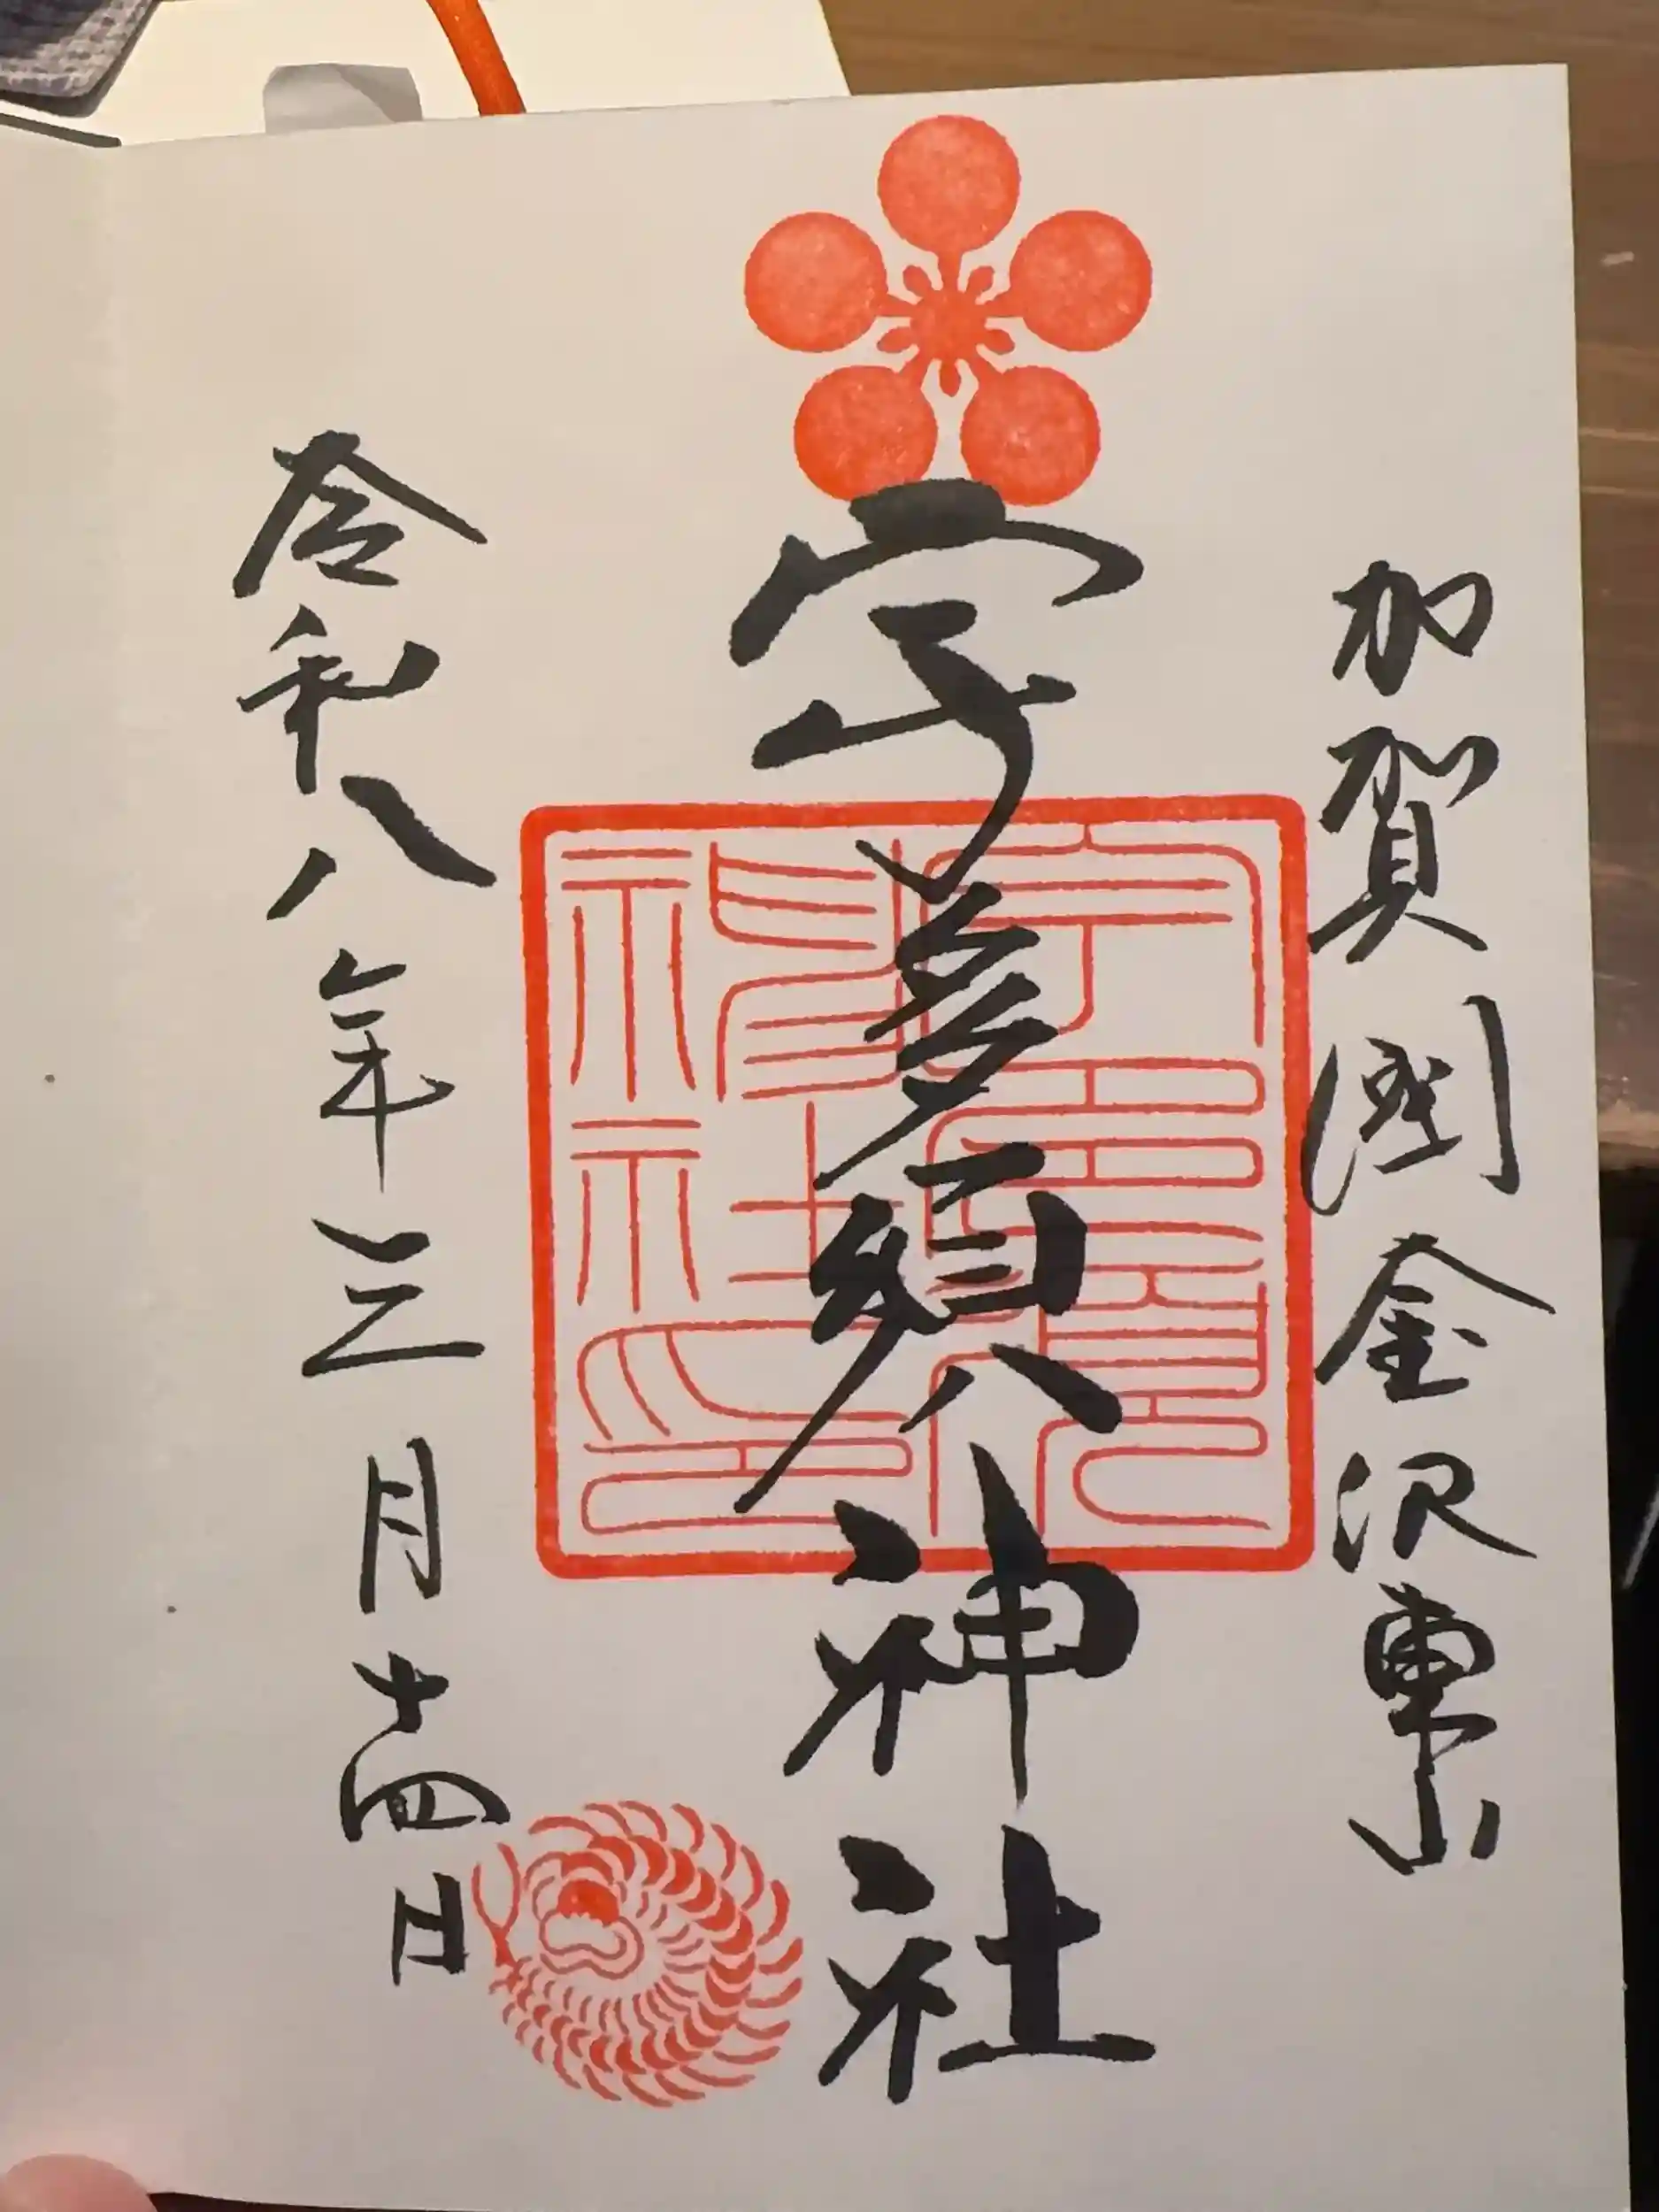 加賀國金沢東山
宇多須神社
令和八年三月十四日
宇多須
神社印